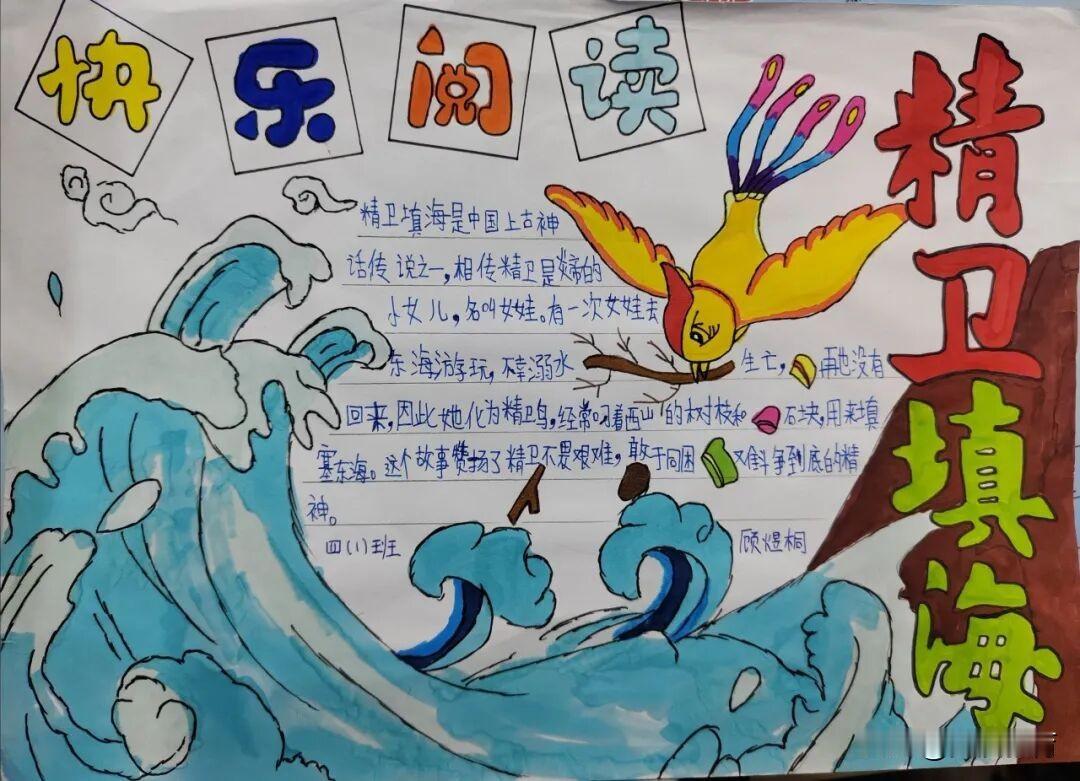 快乐阅读
精卫填海
精卫填海是中国上古神
话传说之一,相传精卫是炎帝的
小女儿,名叫女娃。有一次女娃去
东海游玩,不幸溺水 生亡,再也没有
回来,因此她化为精卫鸟,经常叼着西山的树枝和 石块,用来填
塞东海。这个故事赞扬了精卫不畏艰难,敢于同困 难斗争到底的精
神。
四(1)班 顾煜桐